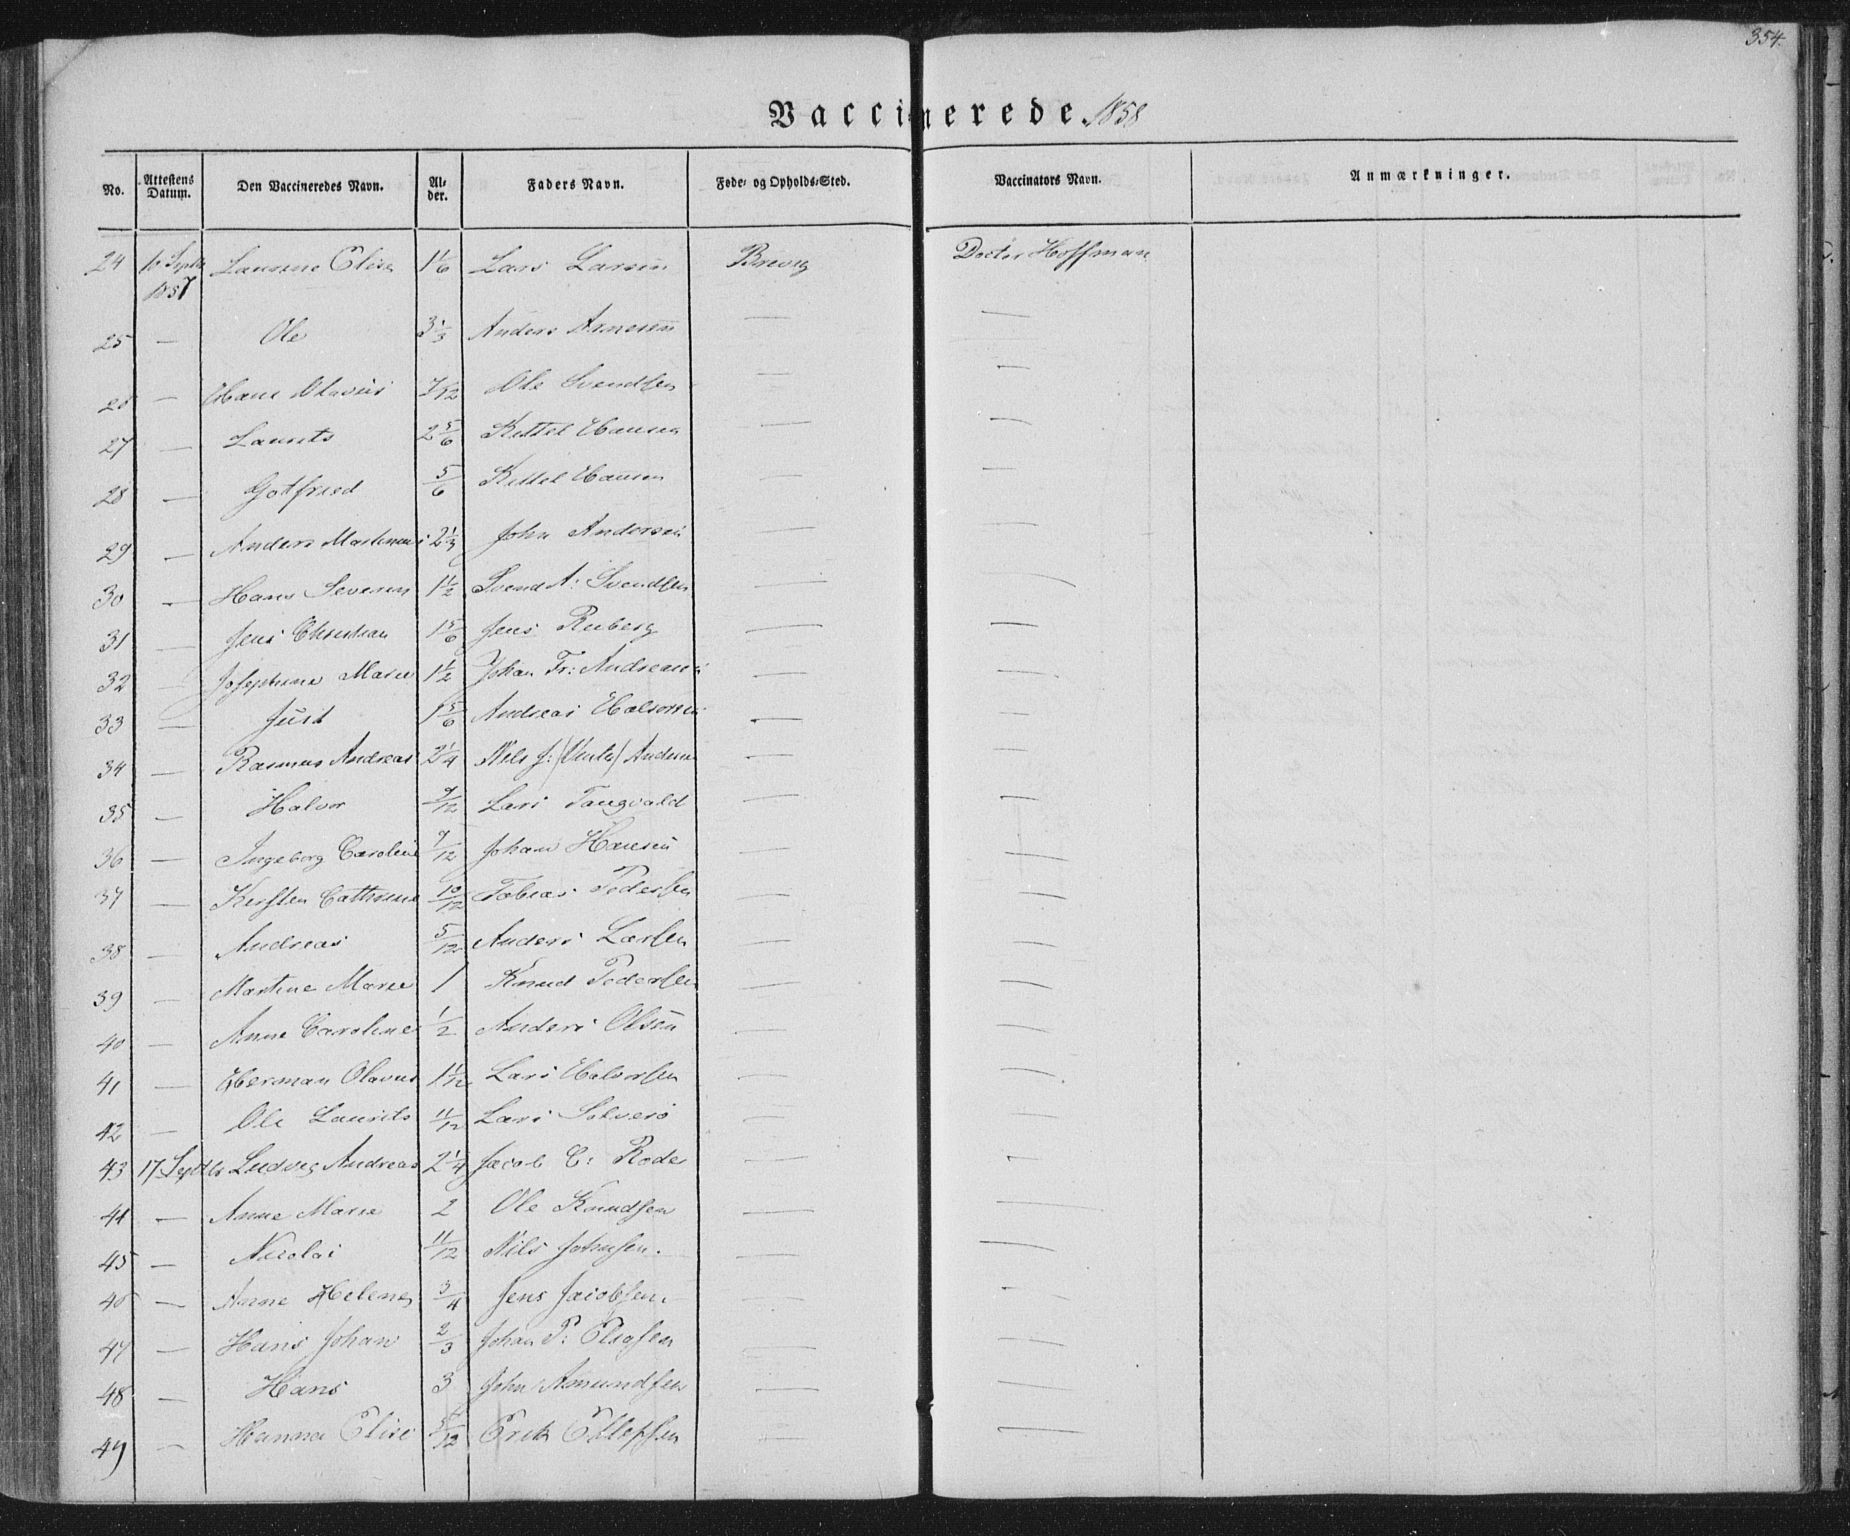 354.
Vaccinerede 1858
No. Attestens Datum. Den Vaccineredes Navn. Al- der. Faders Navn. Føde- og Opholds-Sted. Vaccinators Navn. Anmærkninger.
24 16 Septbr 1857 Laurine Elise 1 1/6 Lars Larsen Brevig Doctor Hoffman
25 — Ole 3 1/3 Anders Arnesen — —
26 — Hans Olavus 7/12 Ole Svendsen — —
27 — Laurits 2 5/6 Kittel Hansen — —
28 — Gotfried 5/6 Kittel Hansen — —
29 — Anders Martinius 2 1/3 John Andersen — —
30 — Hans Severin 1 1/2 Svend A: Svendsen — —
31 — Jens Christian 1 5/6 Jens Ruberg — —
32 — Josephine Marie 1 1/2 Johan Fr: Andreasen — —
33 — Just 1 5/6 Andreas Halvorsen — —
34 — Rasmus Andreas 2 1/4 Nils J: Andersen — —
35 — Halvor 9/12 Lars Tangvald — —
36 — Ingeborg Caroline 7/12 Johan Hansen — —
37 — Kirsten Cathrine 10/12 Tobias Pedersen — —
38 — Andreas 5/12 Anders Larsen — —
39 — Martine Marie 1 Knud Pedersen — —
40 — Anne Caroline 1/2 Anders Olsen — —
41 — Herman Olavus 1 1/12 Lars Halvorsen — —
42 — Ole Laurits 11/12 Lars Solverø — —
43 17 Septbr Ludvig Andreas 2 1/4 Jacob C: Roder — —
44 — Anne Marie 2 Ole Knudsen — —
45 — Nicolai 11/12 Nils Johnsen. — —
46 — Anne Helene 3/4 Jens Jacobsen. — —
47 — Hans Johan 2/3 Johan P: — —
48 — Hans 3 John Amundsen — —
49 — Hanna Elise 5/12 Erik Ellefsen — —